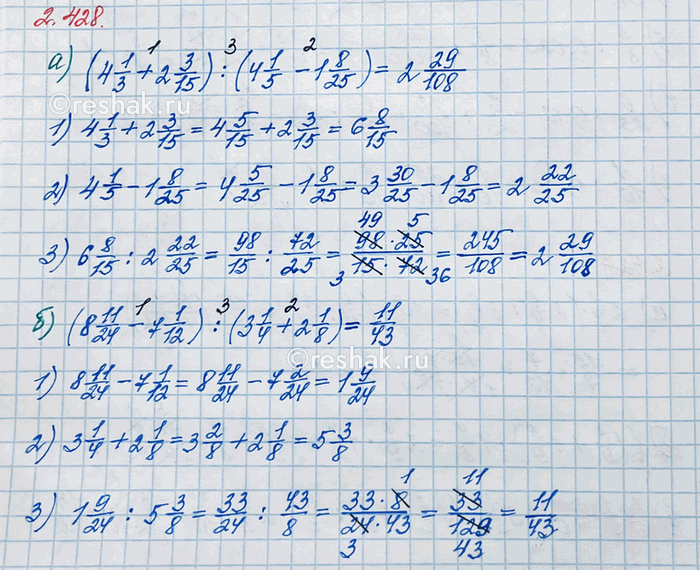 2.428.
1 3 2
а) (4 1/3 + 2 3/15) : (4 1/5 − 1 8/25) = 2 29/108
©reshak.ru
1) 4 1/3 + 2 3/15 = 4 5/15 + 2 3/15 = 6 8/15
2) 4 1/5 − 1 8/25 = 4 5/25 − 1 8/25 = 3 30/25 − 1 8/25 = 2 22/25
49 5
3) 6 8/15 : 2 22/25 = 98/15 : 72/25 = 98·25/15·72 = 245/108 = 2 29/108
3 36
1 3 2
б) (8 11/24 − 7 1/12) : (3 1/4 + 2 1/8) = 11/43
©reshak.ru
1) 8 11/24 − 7 1/12 = 8 11/24 − 7 2/24 = 1 9/24
2) 3 1/4 + 2 1/8 = 3 2/8 + 2 1/8 = 5 3/8
1 11
3) 1 9/24 : 5 3/8 = 33/24 : 43/8 = 33·8/24·43 = 33/129 = 11/43
3 43